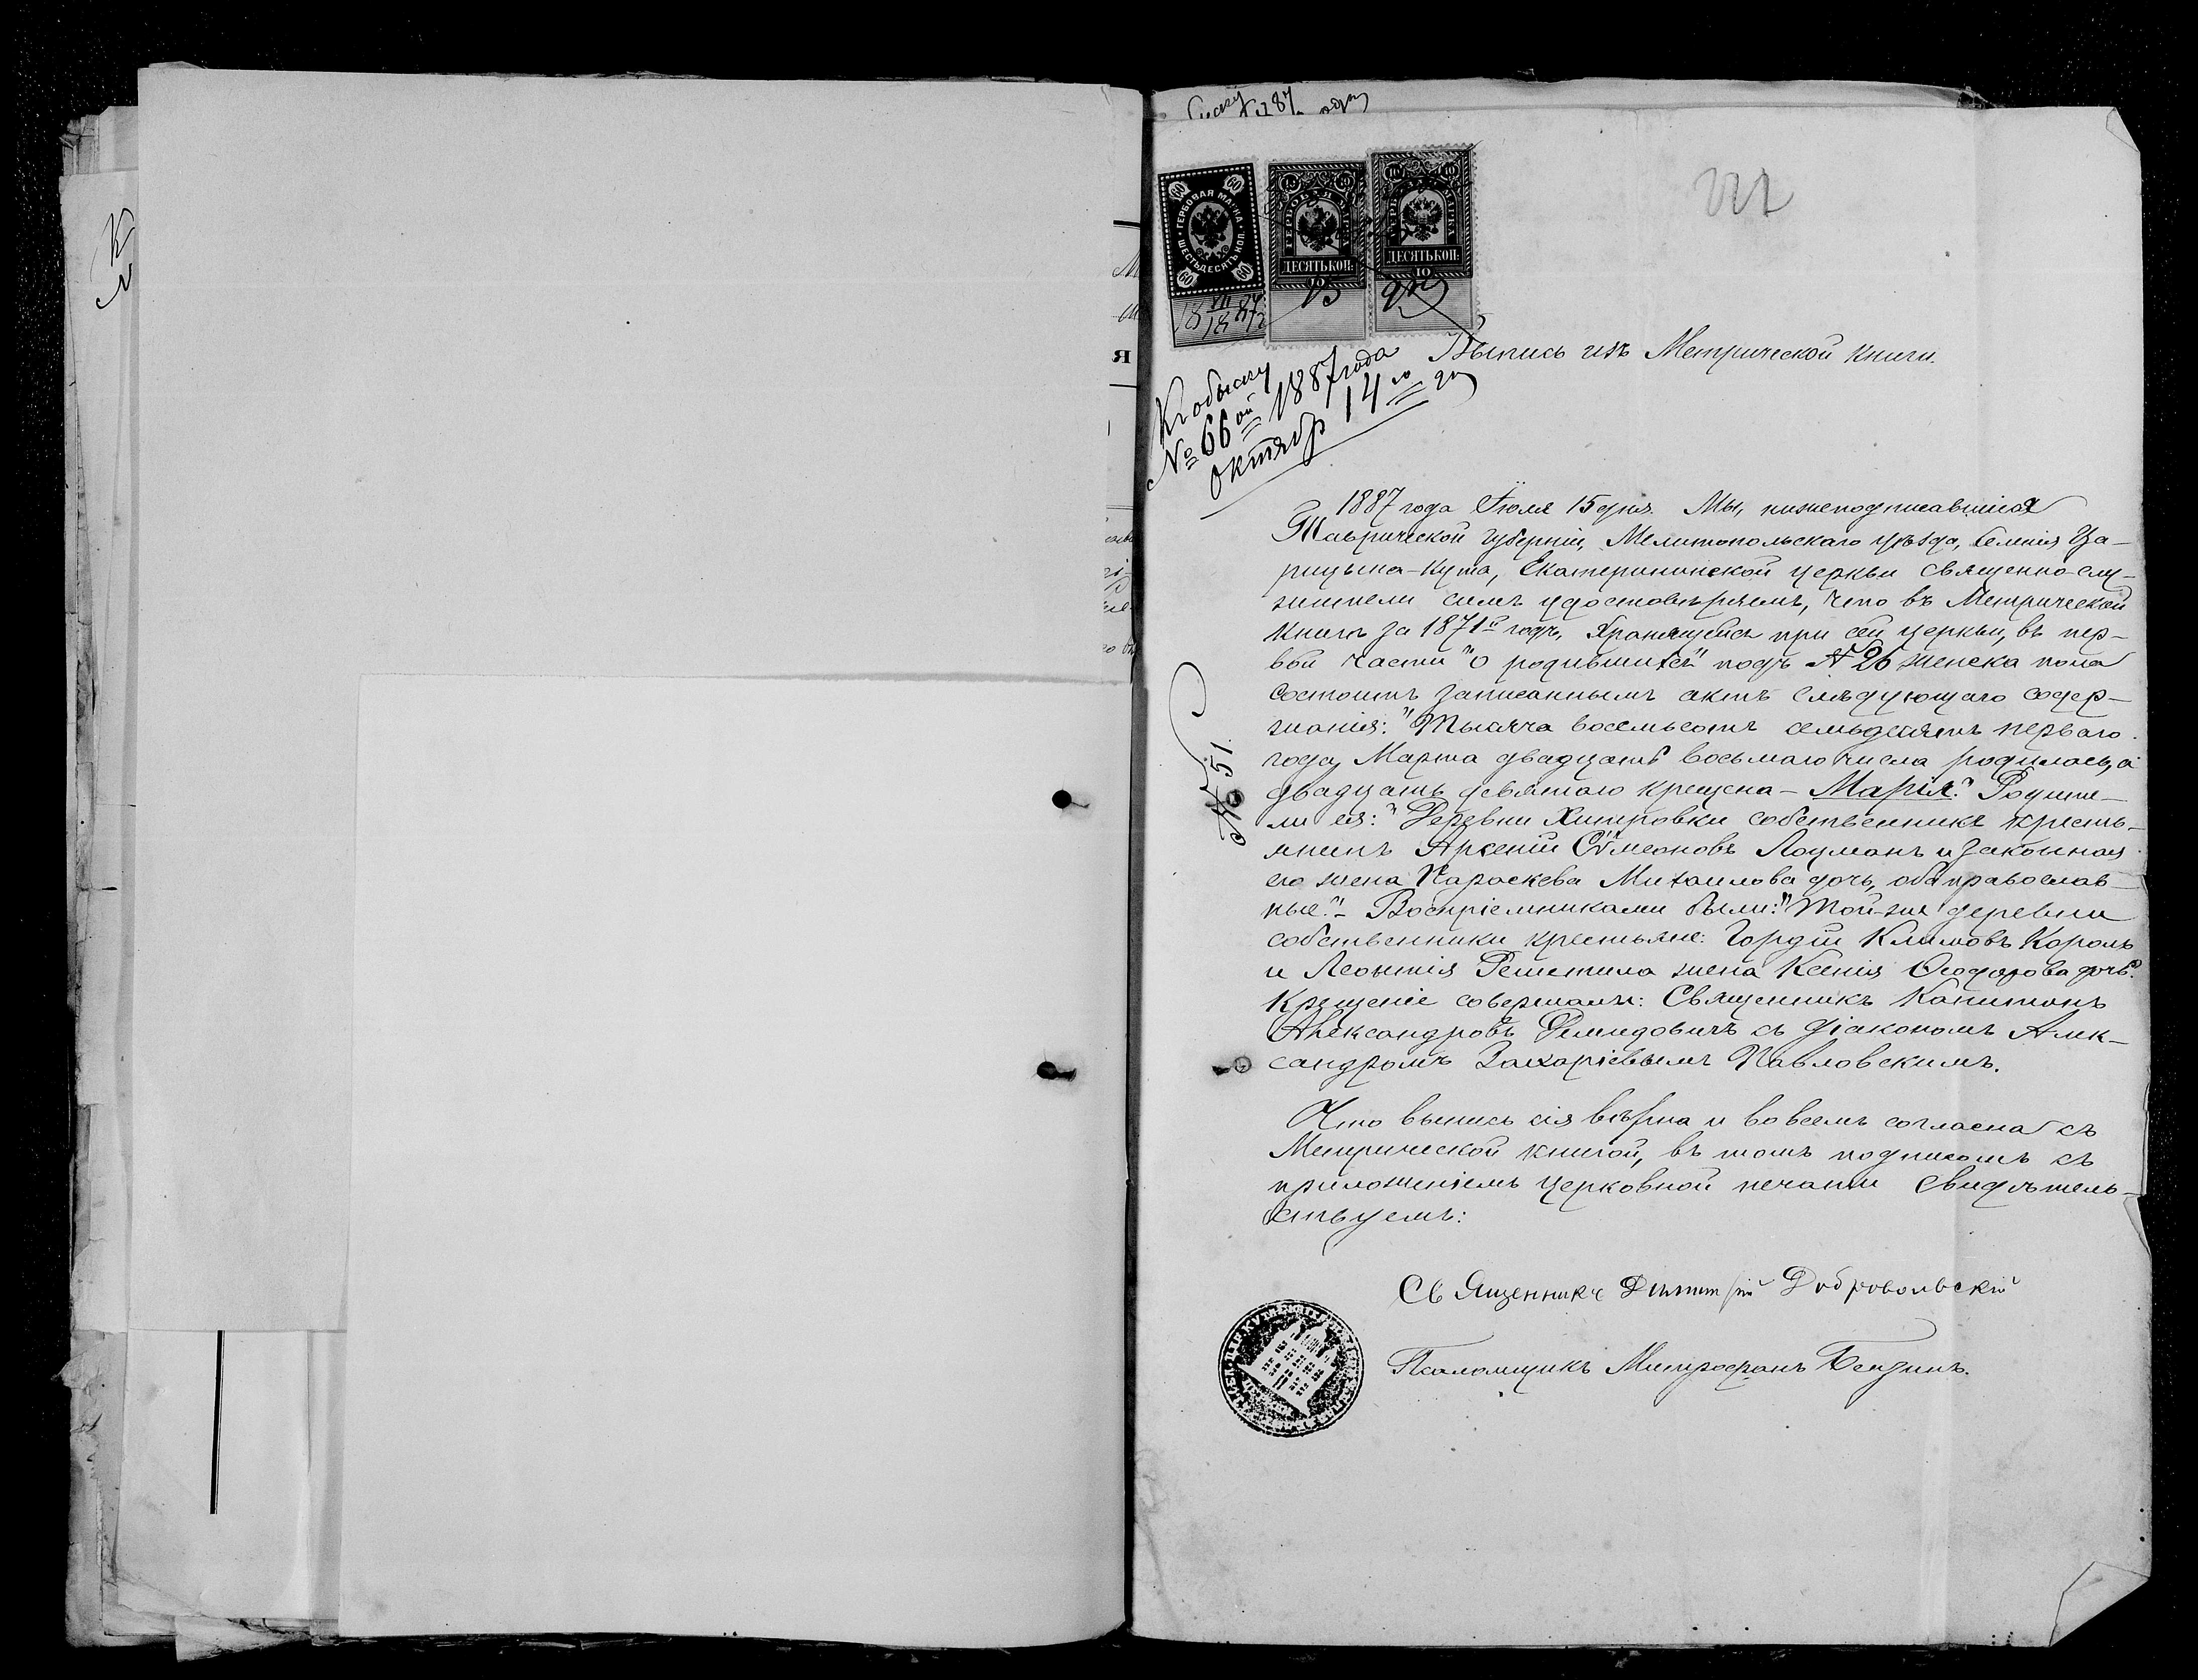 ГЕРБОВАЯ МАРКА
ШЕСТЬДЕСЯТЪ КОП.
60 60 60 60
ДЕСЯТЬ КОП.
10
ДЕСЯТЬ КОП.
10
Выпись изъ Метрической книги.
Къ обыску
№ 66ой 1887 года
октябр 14го дн
1887 года Іюля 15 дня. Мы, нижеподписавшіеся
Таврической Губерніи, Мелитопольскаго уѣзда, селенія Ца-
рицына-Кута, Екатерининской церкви священно-слу-
жители симъ удостовѣряемъ, что въ Метрической
книгѣ за 1871й годъ, хранящейся при сей церкви, въ пер-
вой части "о родившихся" подъ № 26 женска пола
состоитъ записаннымъ актъ слѣдующаго содер-
жанія: "Тысяча восемьсотъ семьдесятъ перваго
года, Марта двадцать восьмаго числа родилась, а
двадцать девятаго крещена - Марія." Родите-
ли ея: "Деревни собственникъ кресть-
янинъ Арсеній Сѵмеоновъ Лоуманъ и законная
его жена Параскева Михаилова дочь, оба православ-
ные." - Воспріемниками были: "Той-же деревни
собственники крестьяне: Гордій Климовъ Король
и Леонтія Решетила жена Ксенія Ѳеодорова дочь."
Крещеніе совершали: Священникъ Капитонъ
Александровъ Демидовичъ съ діакономъ Алек-
сандромъ Захаріевымъ Павловскимъ.
№ 51.
Что выпись сія вѣрна и во всемъ согласна съ
Метрической книгой, въ томъ подписомъ съ
приложеніемъ церковной печати свидѣтель-
ствуемъ:
Священникъ Димитрій Добровольскій
Псаломщикъ Митрофанъ